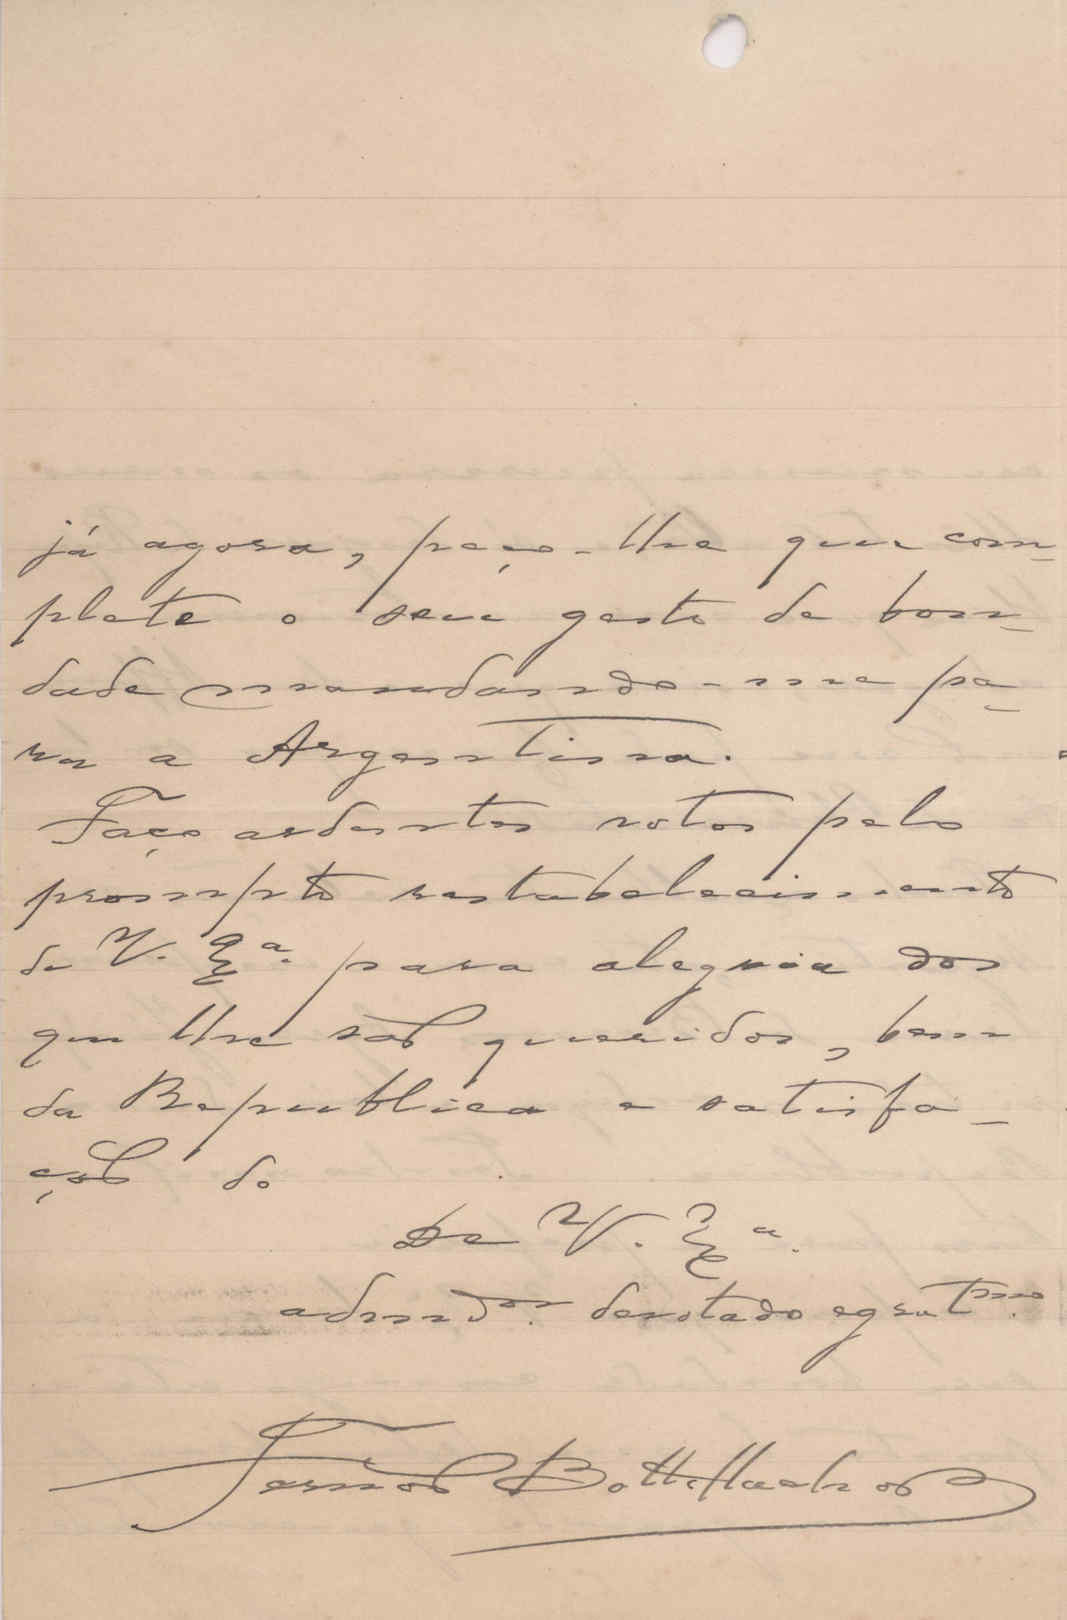 já agora, peço-lhe que com-
plete o seu gesto de bon-
dade mandando-me pa-
ra a Argentina.
Faço ardentes votos pelo
prompto restabelecimento
de V. Exª. para alegria dos
que lhe são queridos, bem
da Republica e satisfa-
ção do
De V. Exª.
admdor. devotado e gratmo.
Fernão Botto Machado